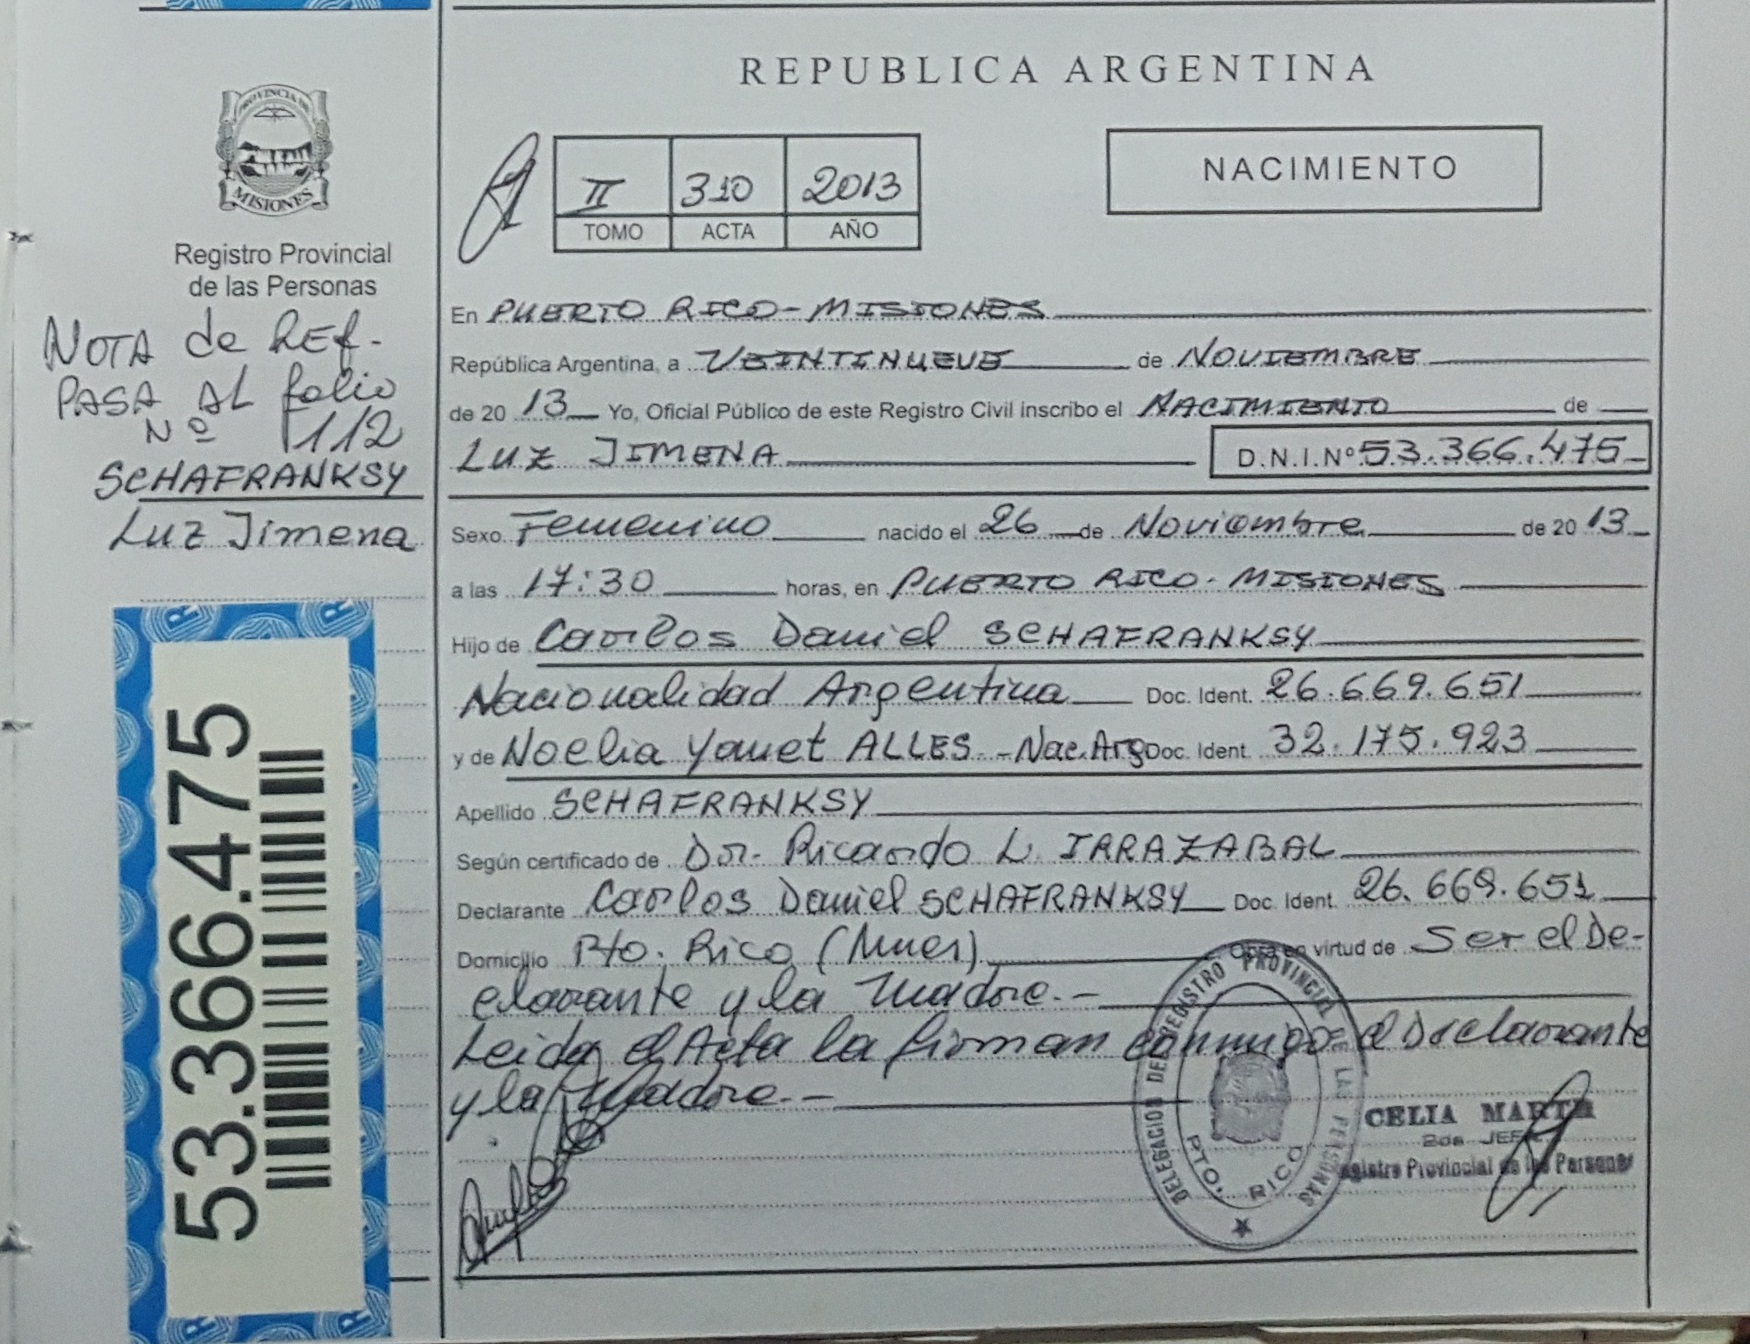 REPUBLICA ARGENTINA
PROVINCIA DE
MISIONES
Registro Provincial
de las Personas
NOTA de REf.-
PASA AL folio
Nº 112
SCHAFRANKSY
Luz Jimena
53.366.475
II 310 2013
TOMO ACTA AÑO
NACIMIENTO
En PUERTO RICO-MISIONES
República Argentina, a VEINTINUEVE de NOVIEMBRE
de 20 13 Yo, Oficial Público de este Registro Civil inscribo el NACIMIENTO de
LUZ JIMENA D.N.I.Nº 53.366.475
Sexo Femenino nacido el 26 de Noviembre de 20 13
a las 17:30 horas, en PUERTO RICO-MISIONES
Hijo de Carlos Daniel SCHAFRANKSY
Nacionalidad Argentina Doc. Ident. 26.669.651
y de Noelia Yamet ALLES.-Nac.Arg Doc. Ident. 32.175.923
Apellido SCHAFRANKSY
Según certificado de Dr. Ricardo L. IRRAZABAL
Declarante Carlos Daniel SCHAFRANKSY Doc. Ident. 26.669.651
Domicilio Pto. Rico (Mnes) Obra en virtud de Ser el De-
clarante y la madre.-
Leida el Acta la firman conmigo el Declarante
y la Madre.-
DELEGACION DE REGISTRO PROVINCIAL DE LAS PERSONAS
PTO. RICO
CELIA MARTA
2da JEFA
Registro Provincial de las Personas